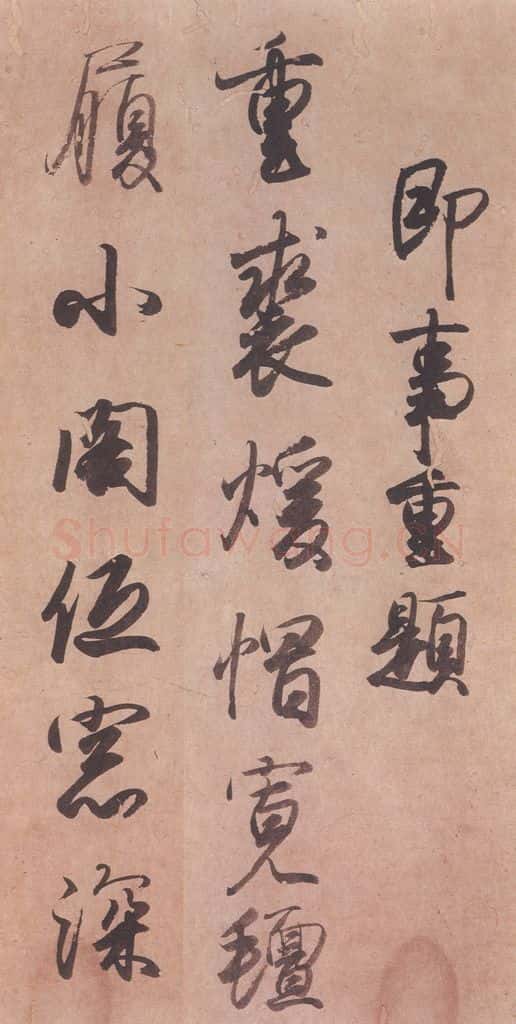 即事重題
重裘煖帽寬氊
履小閤低窓深
Shufawang.CN